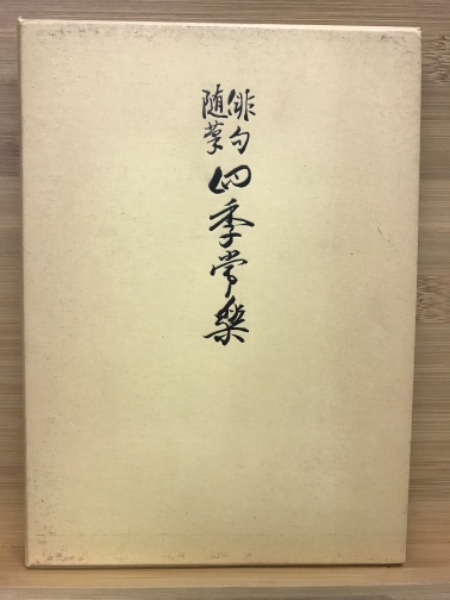 俳句
随筆
四季常楽